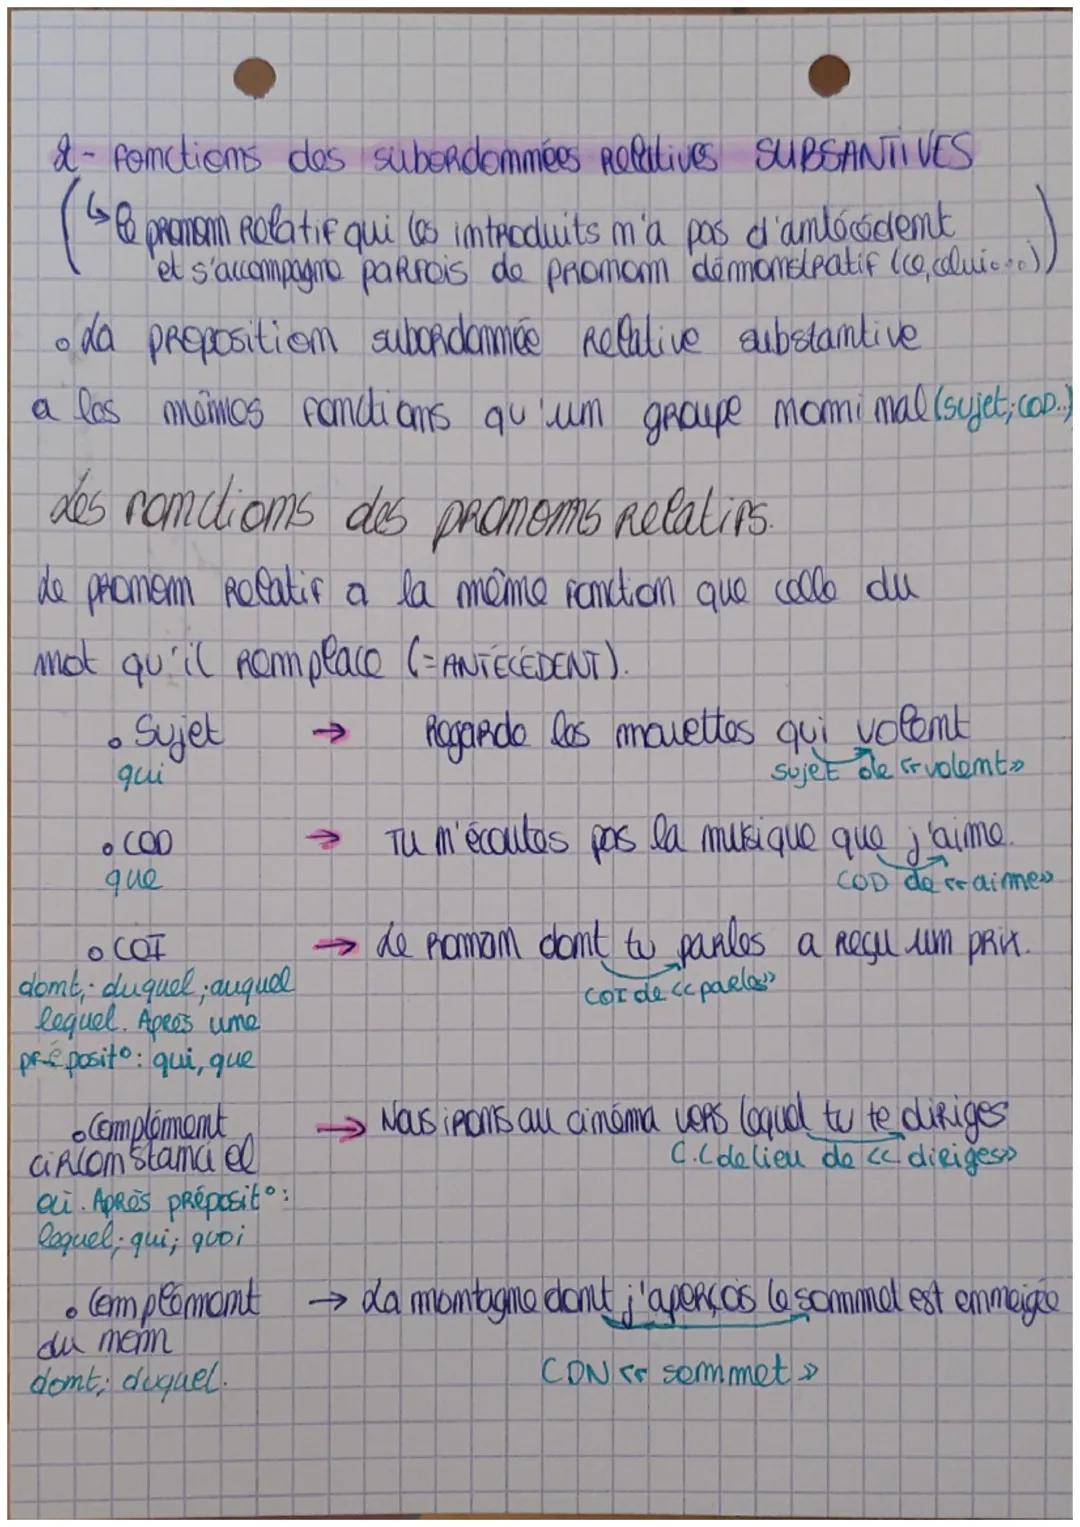 2- Fonctions des subordonnées Relatives SUBSANTIVES
(↳ le pronom Relatif qui les introduits n'a pas d'antécédent
et s'accompagne parfois de pronom démonstratif (ce, celui...))
• La proposition subordonnée Relative substantive
a les mêmes fonctions qu'un groupe nominal (sujet; COD..)
Les fonctions des pronoms Relatifs.
Le pronom Relatif a la même fonction que celle du
mot qu'il Remplace (=ANTÉCÉDENT).
• Sujet → Regarde les mouettes qui volent
qui sujet de «volent»
• COD → Tu n'écoutes pas la musique que j'aime.
que COD de «aime»
• COI → Le Roman dont tu parles a Reçu un prix.
dont; duquel; auquel COI de «parles»
lequel. Après une
préposit°: qui, que
• Complément → Nous irons au cinéma vers lequel tu te diriges
circonstanciel C.C de lieu de «diriges»
où. Après préposit°:
lequel; qui; quoi
• Complément → La montagne dont j'aperçois le sommet est enneigée
du nom
dont; duquel. CDN «sommet»